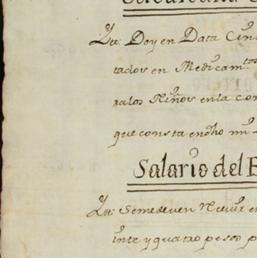 Ytt: Doy en Data Cin
tados en Medicam.tos
a los Niños en la con
que consta en dho m
Salario del
Ytt: Se me deven
inte y quatro pesos p